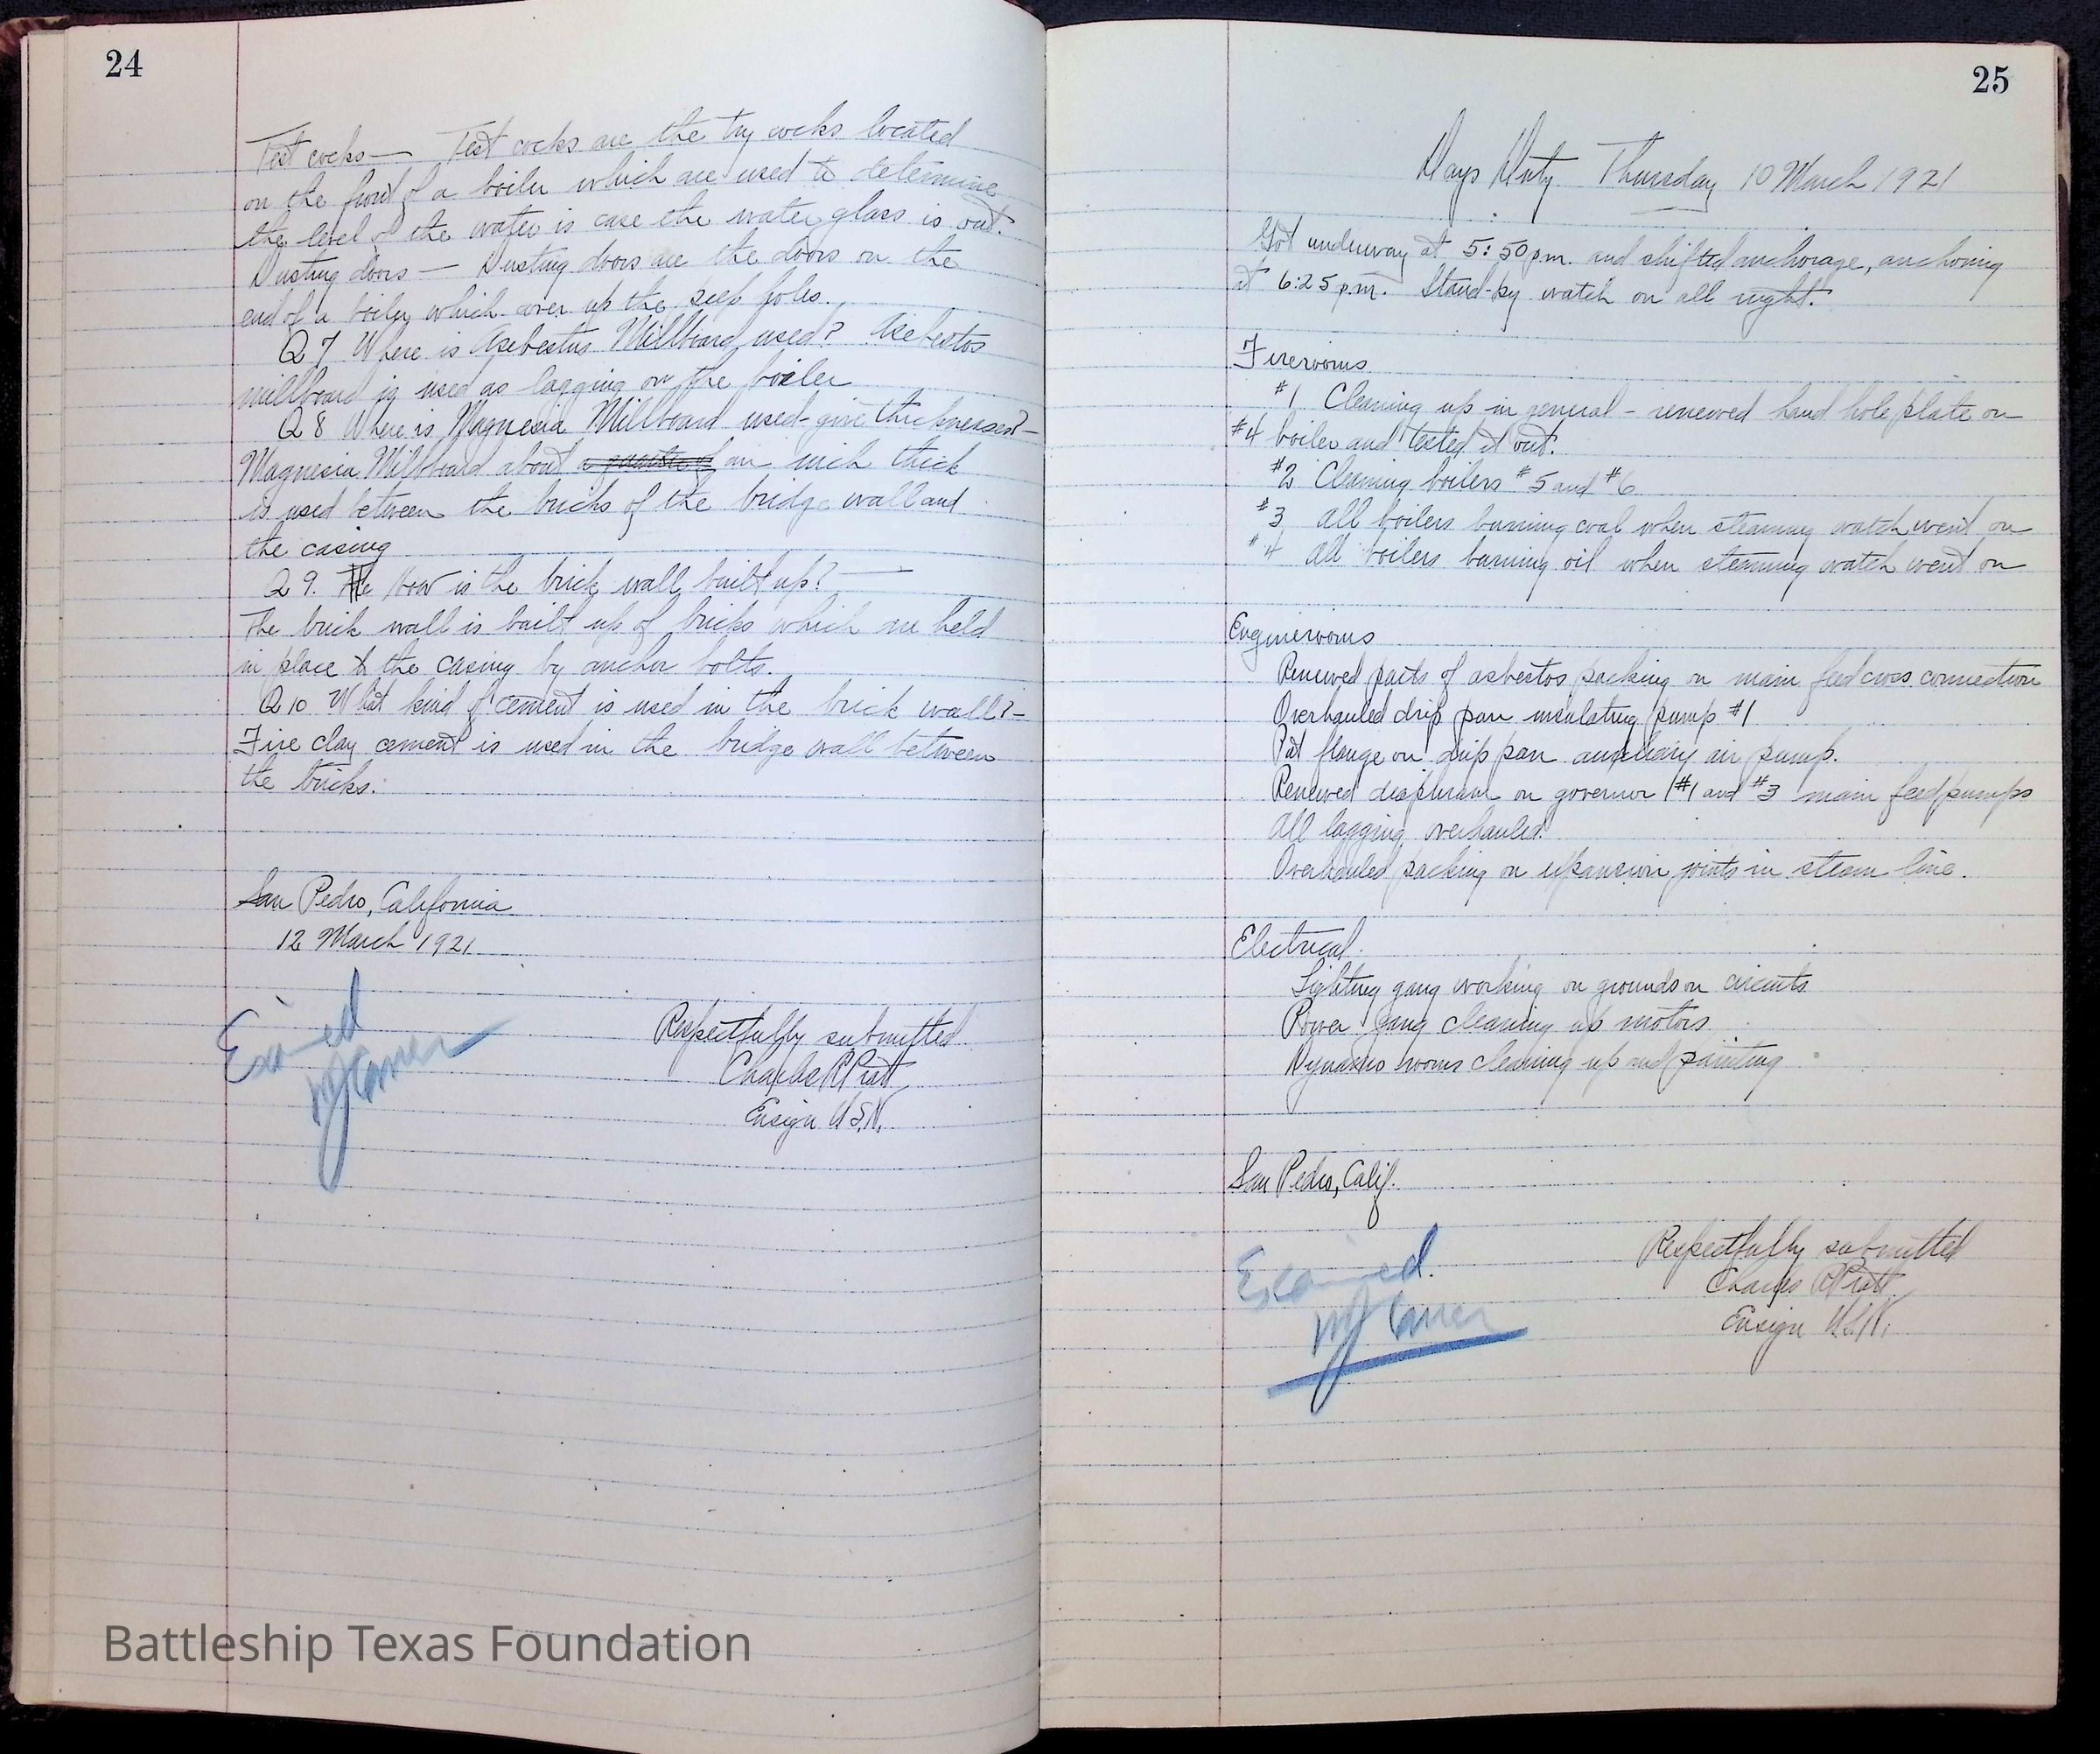 24
Test cocks — Test cocks are the try cocks located
on the front of a boiler which are used to determine
the level of the water is case the water glass is out.
Dusting doors — Dusting doors are the doors on the
end of a boiler which cover up the
Q 7 Where is Asebestus Millboard used? Asebestos
millboard is used as lagging on the boiler
Q 8 Where is Magnesia Millboard used - give thicknesses? -
Magnesia Millboard about a quarter of an inch thick
is used between the bricks of the bridge wall and
the casing
Q 9. The How is the brick wall built up? —
The brick wall is built up of bricks which are held
in place to the casing by anchor bolts.
Q 10 What kind of cement is used in the brick wall? -
Fire clay cement is used in the bridge wall between
the bricks.
San Pedro, California
12 March 1921
Respectfully submitted
Charles R Pratt
Ensign U.S.N.
Battleship Texas Foundation
25
Days Duty Thursday 10 March 1921
Got underway at 5:50 p.m. and shifted anchorage, anchoring
at 6:25 p.m. Stand-by watch on all night.
Firerooms
#1 Cleaning up in general - renewed hand hole plate on
#4 boiler and tested it out.
#2 Cleaning boilers #5 and #6
#3 All boilers burning coal when steaming watch went on
#4 All boilers burning oil when steaming watch went on
Enginerooms
Renewed parts of asbestos packing on main feed cross connection
Overhauled drip pan insulating pump #1
Put flange on drip pan auxiliary air pump.
Renewed diaphram on governor #1 and #3 main feed pumps
All lagging overhauled.
Overhauled packing on expansion joints in steam line.
Electrical.
Lighting gang working on grounds on circuits
Power gang cleaning up motors
Dynamo rooms cleaning up and painting
San Pedro, Calif.
Examined.
Respectfully submitted
Charles R Pratt
Ensign U.S.N.